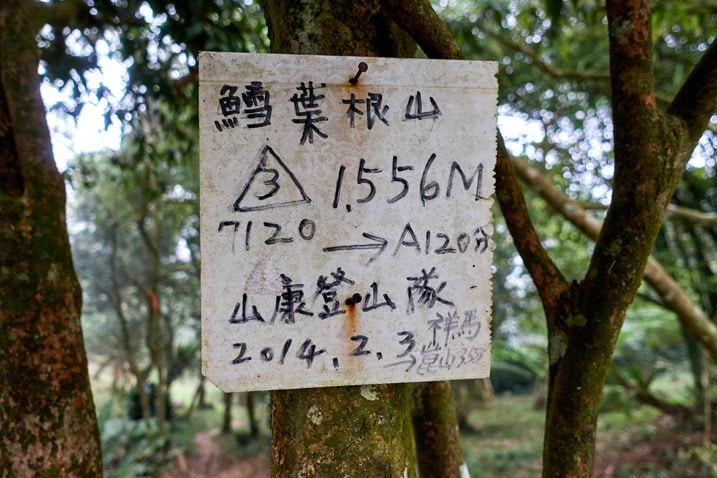 鱈葉根山
3 1,556M
7120 → A120分
山康登山隊
2014.2.3
祥馬
→ 崑山